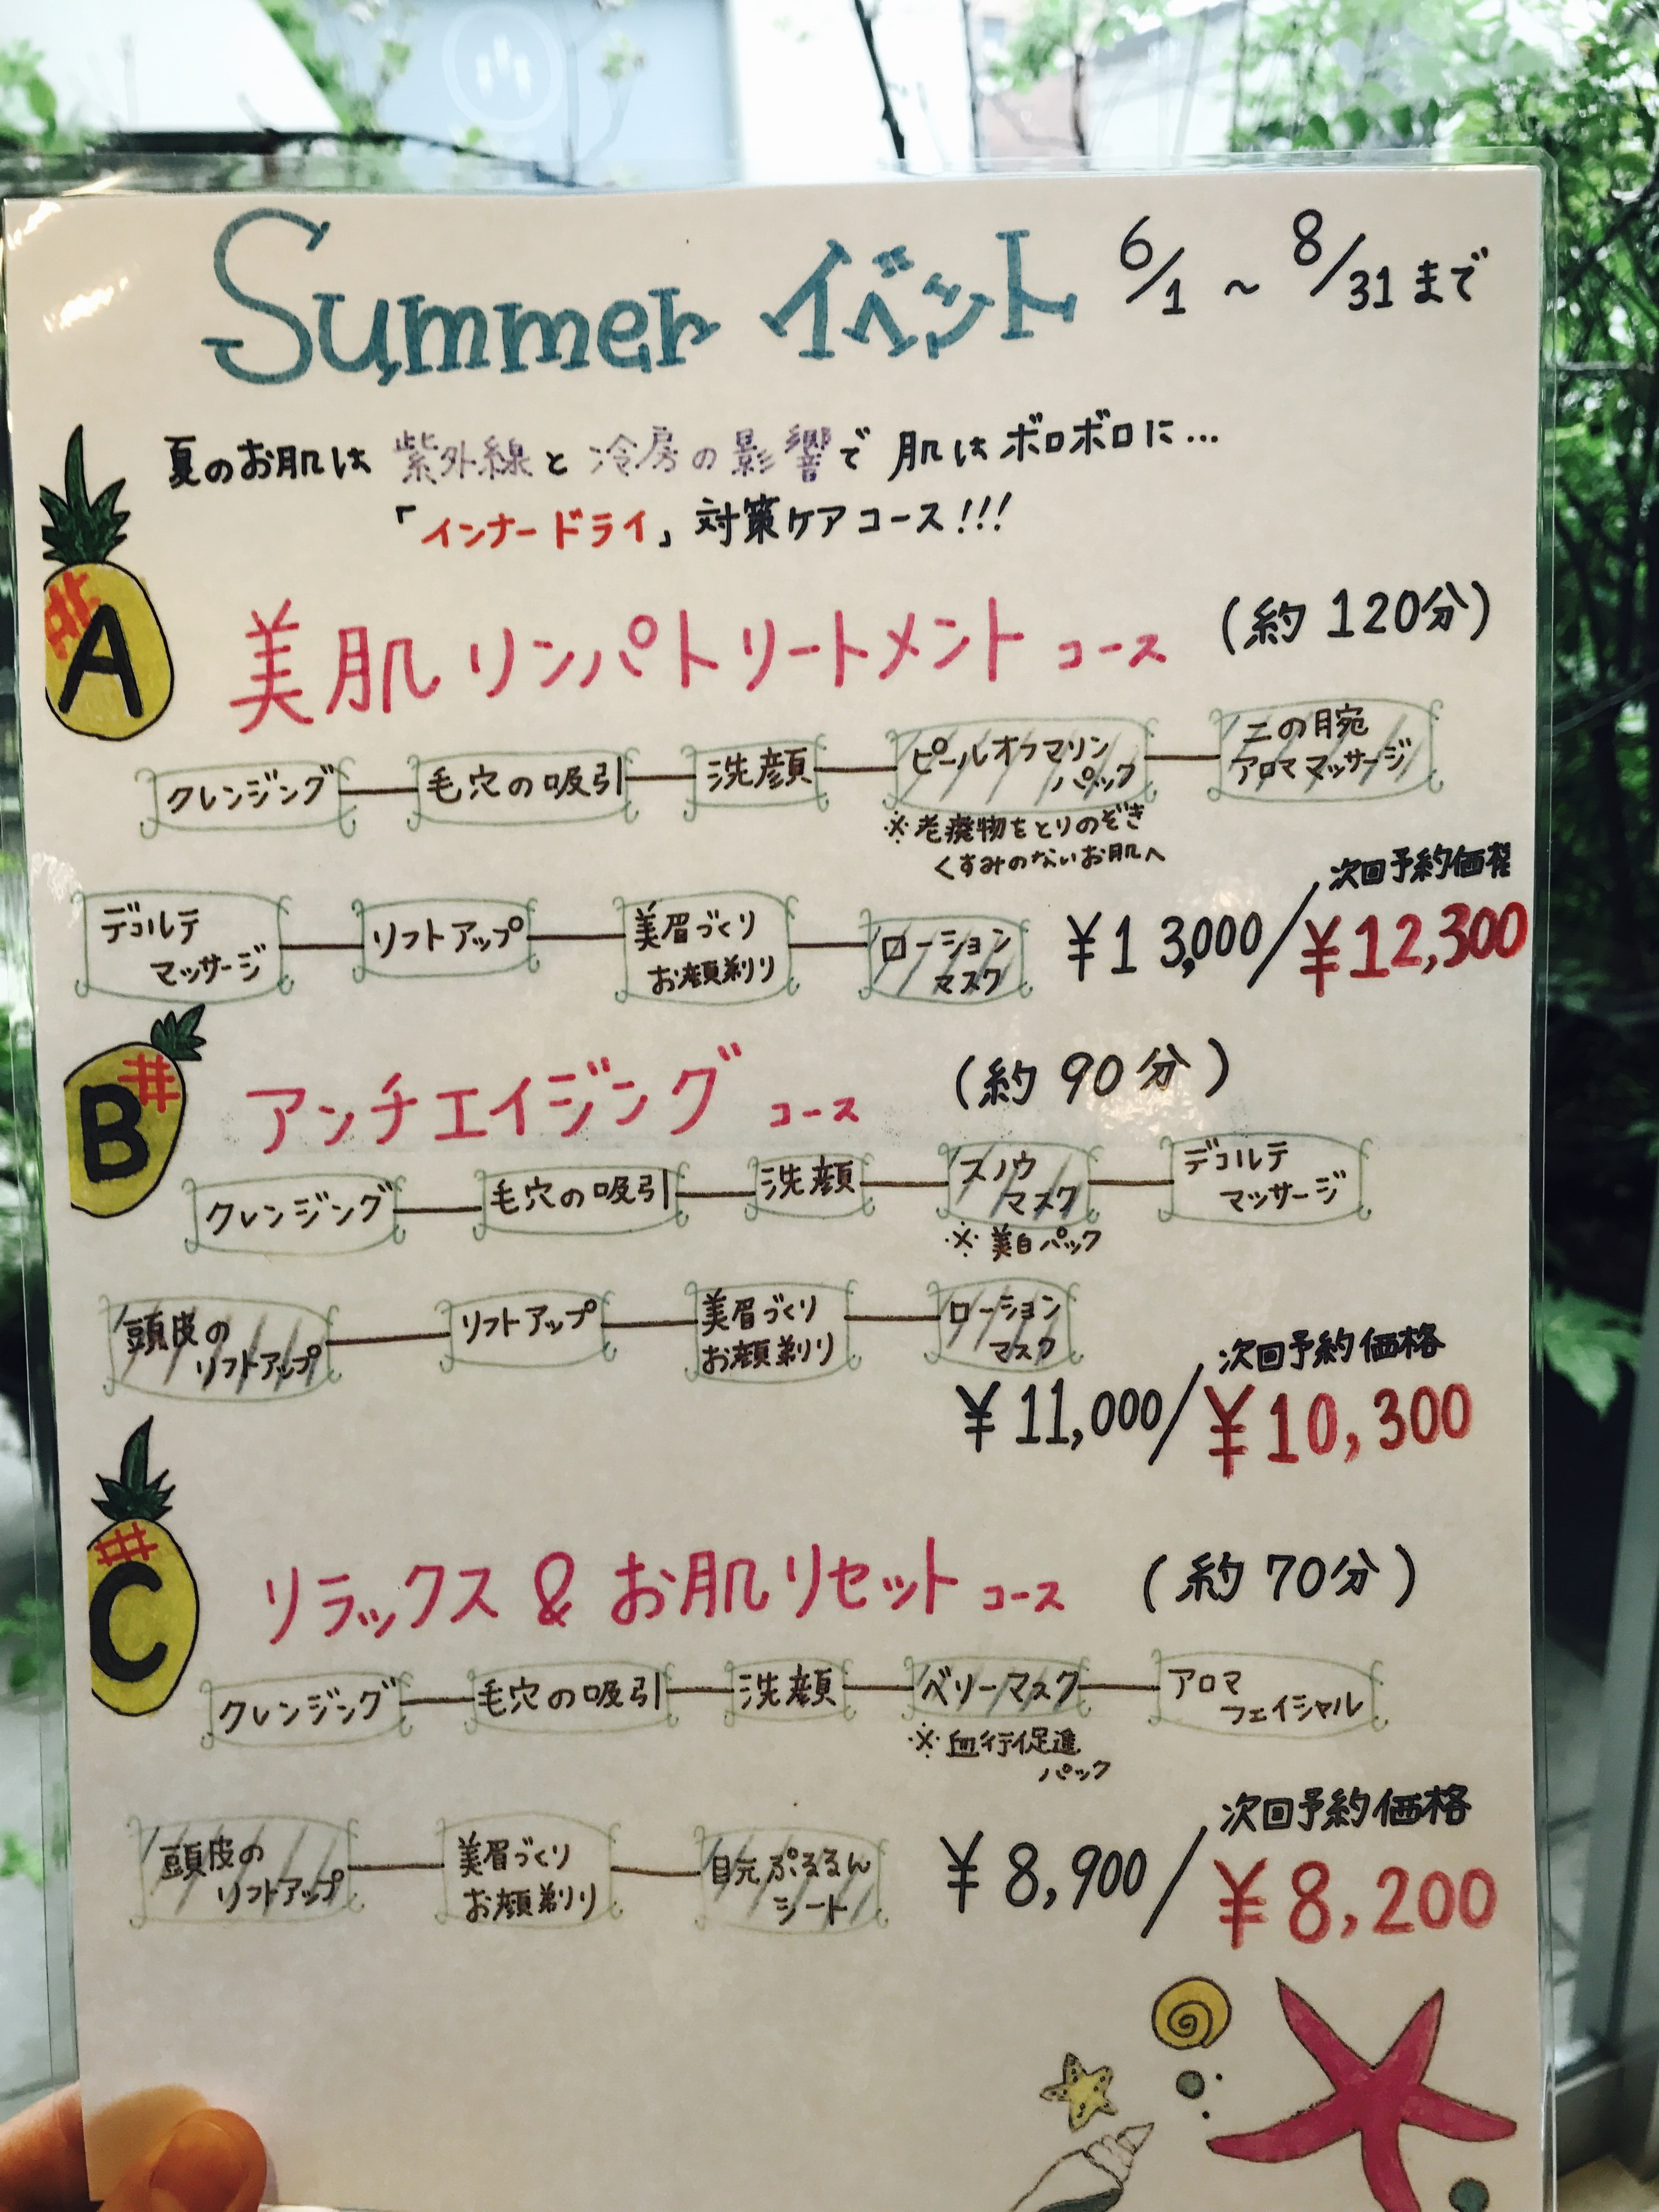 Summer イベント 6/1 ~ 8/31 まで
夏のお肌は 紫外線と 冷房の影響で 肌はボロボロに...
「インナードライ」対策ケアコース!!!
A 美肌リンパトリートメント コース (約 120分)
クレンジング 毛穴の吸引 洗顔 ピールオフマリンパック 二の腕アロママッサージ
※老廃物をとりのぞき
くすみのないお肌へ
次回予約価格
デコルテマッサージ リフトアップ 美眉づくりお顔剃り ローションマスク ¥13,000/¥12,300
B アンチエイジング コース (約 90分)
クレンジング 毛穴の吸引 洗顔 スノウマスク デコルテマッサージ
※美白パック
頭皮のリフトアップ リフトアップ 美眉づくりお顔剃り ローションマスク
次回予約価格
¥11,000/¥10,300
C リラックス & お肌リセット コース (約 70分)
クレンジング 毛穴の吸引 洗顔 ベリーマスク アロマフェイシャル
※血行促進
パック
次回予約価格
頭皮のリフトアップ 美眉づくりお顔剃り 目元ぷるるんシート ¥8,900/¥8,200